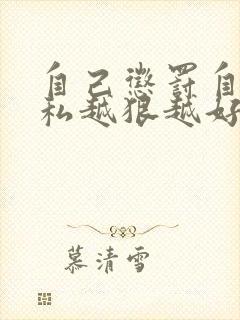 自己惩罚自
私越狠越好
慕清雪